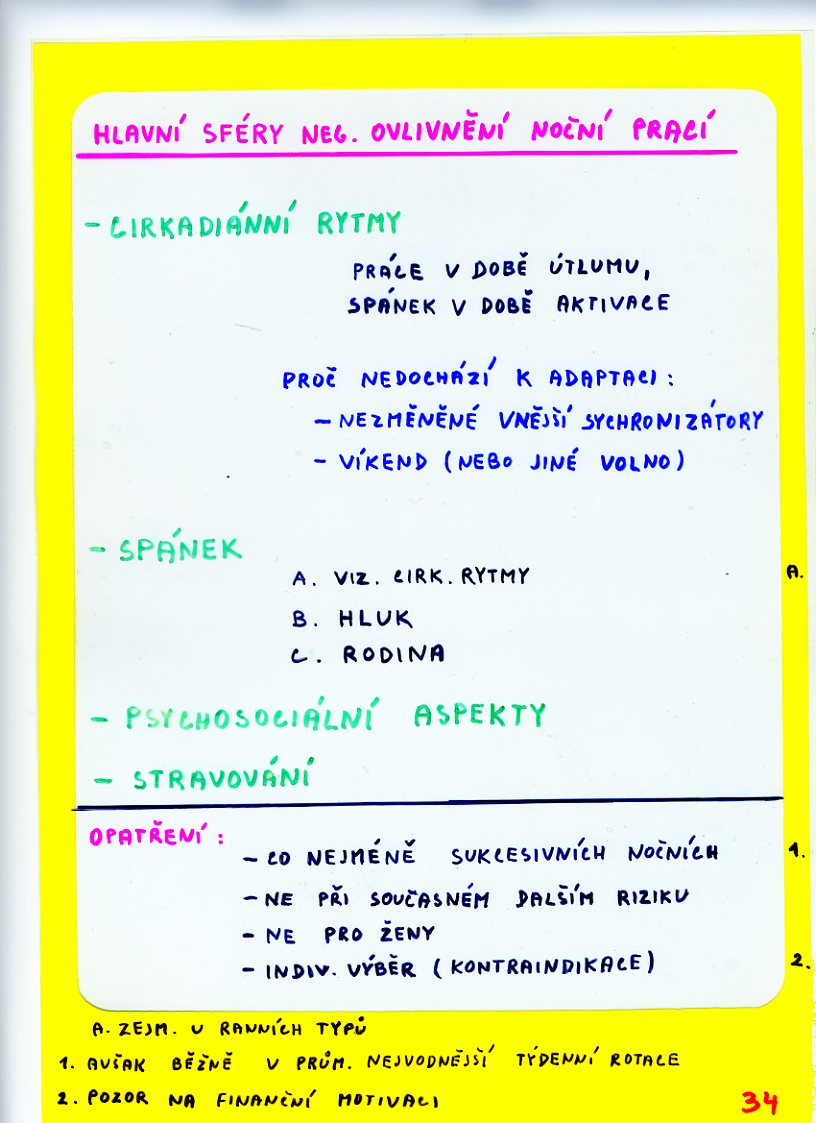 HLAVNÍ SFÉRY NEG. OVLIVNĚNÍ NOČNÍ PRACÍ
- CIRKADIÁNNÍ RYTMY
PRÁCE V DOBĚ ÚTLUMU,
SPÁNEK V DOBĚ AKTIVACE
PROČ NEDOCHÁZÍ K ADAPTACI:
- NEZMĚNĚNÉ VNĚJŠÍ SYCHRONIZÁTORY
- VÍKEND (NEBO JINÉ VOLNO)
- SPÁNEK
A. VIZ. CIRK. RYTMY A.
B. HLUK
C. RODINA
- PSYCHOSOCIÁLNÍ ASPEKTY
- STRAVOVÁNÍ
OPATŘENÍ:
- CO NEJMÉNĚ SUKCESIVNÍCH NOČNÍCH 1.
- NE PŘI SOUČASNÉM DALŠÍM RIZIKU
- NE PRO ŽENY
- INDIV. VÝBĚR (KONTRAINDIKACE) 2.
A. ZEJM. U RANNÍCH TYPŮ
1. AVŠAK BĚŽNĚ V PRŮM. NEJVODNĚJŠÍ TÝDENNÍ ROTACE
2. POZOR NA FINANČNÍ MOTIVACI
34